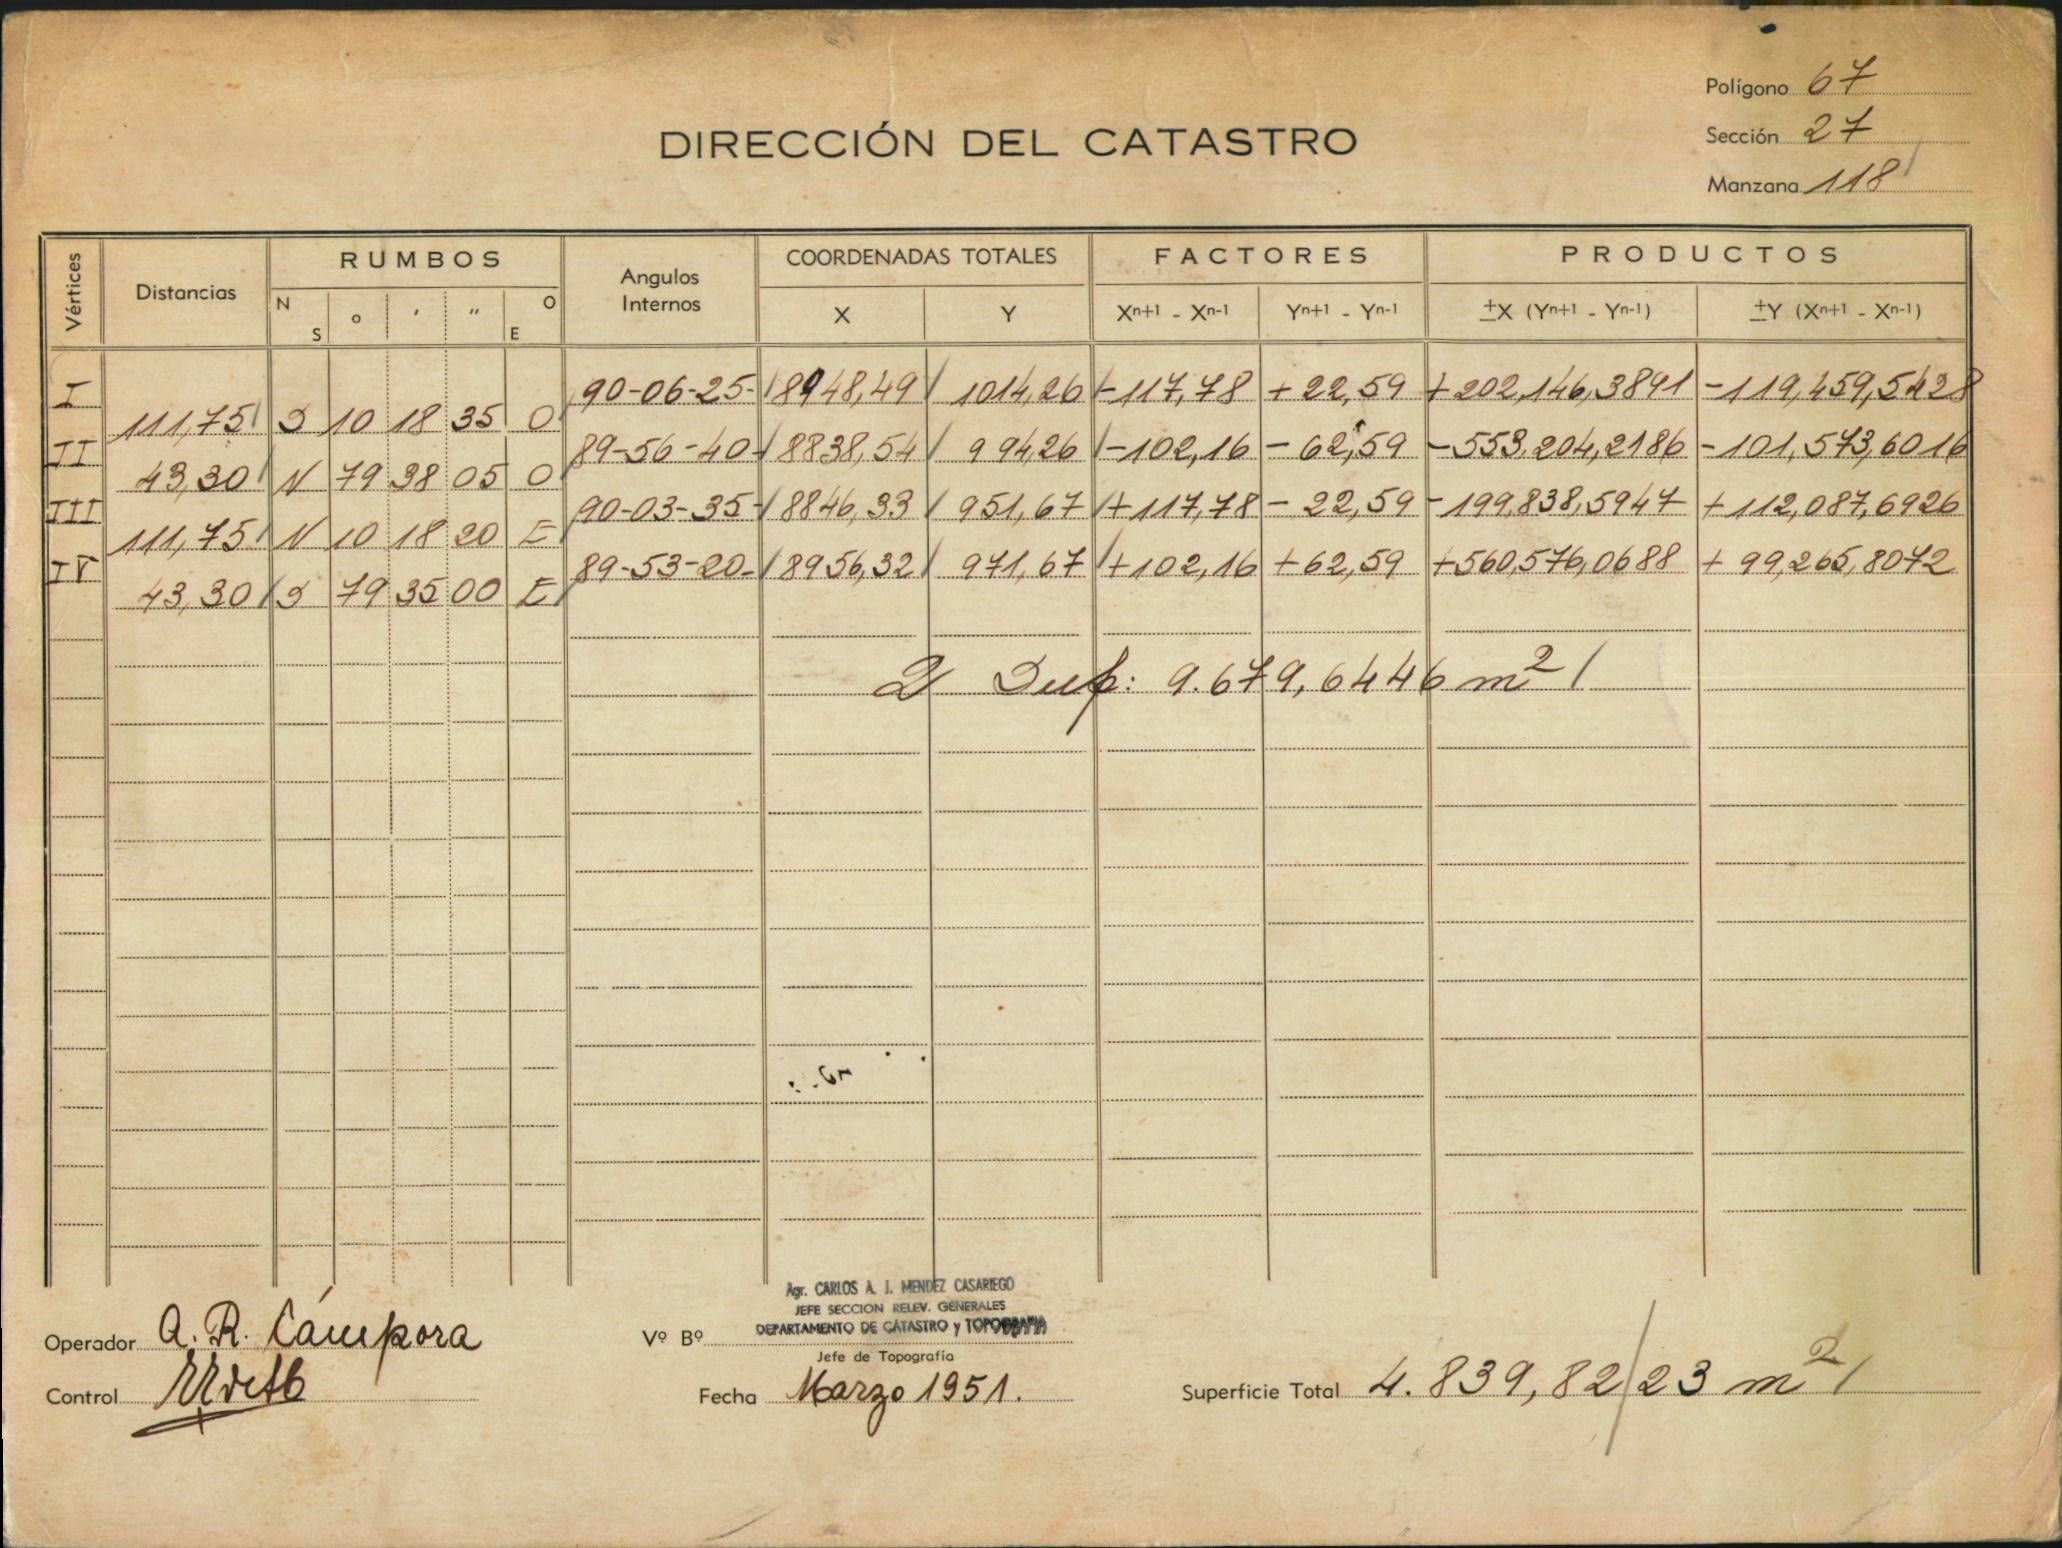 Polígono 67
DIRECCIÓN DEL CATASTRO
Sección 27
Manzana 118
Vértices Distancias RUMBOS Angulos Internos COORDENADAS TOTALES FACTORES PRODUCTOS
N S o ' " O E X Y Xn+1 - Xn-1 Yn+1 - Yn-1 ±X (Yn+1 - Yn-1) ±Y (Xn+1 - Xn-1)
I 90-06-25- 8948,49 1014,26 -117,78 +22,59 +202,146,3891 -119,459,5428
111,75 S 10 18 35 O
II 89-56-40- 8838,54 994,26 -102,16 -62,59 -553.204,2186 -101,573,6016
43,30 N 79 38 05 O
III 90-03-35- 8846,33 951,67 +117,78 -22,59 -199,838,5947 +112,087,6926
111,75 N 10 18 20 E
IV 89-53-20- 8956,32 971,67 +102,16 +62,59 +560,576,0688 +99,265,8072
43,30 S 79 35 00 E
2 Sup: 9.679,6446 m²
Agr. CARLOS A. J. MENDEZ CASARIEGO
JEFE SECCION RELEV. GENERALES
DEPARTAMENTO DE CATASTRO y TOPOGRAFIA
Operador A. R. Cámpora Vº Bº
Jefe de Topografía
Control Fecha Marzo 1951. Superficie Total 4.839,82/23 m²